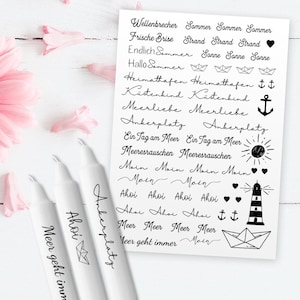 Wellenbrecher Sommer Sommer Sommer
Frische Brise Strand Strand Strand
Endlich Sommer Sonne Sonne Sonne
Hallo Sommer
Heimathafen Heimathafen
Küstenkind Küstenkind
Meerliebe Meerliebe
Ankerplatz Ankerplatz
Ein Tag am Meer Ein Tag am Meer
Meeresrauschen Meeresrauschen
Moin Moin Moin Moin
Moin Moin
Ahoi Ahoi Ahoi
Ahoi Ahoi Ahoi
Meer Meer Meer Meer
Meer geht immer Moin
Meer geht imm
Ahoi
Ankerplatz